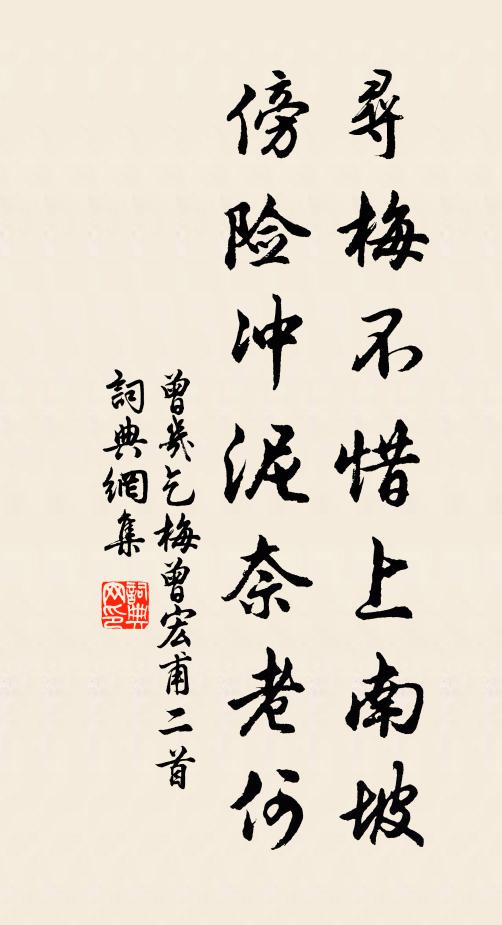 尋梅不惜上南坡
傍险冲泥奈老何
曾幾乞梅曾宏甫二首
詞典網集
詞典網印